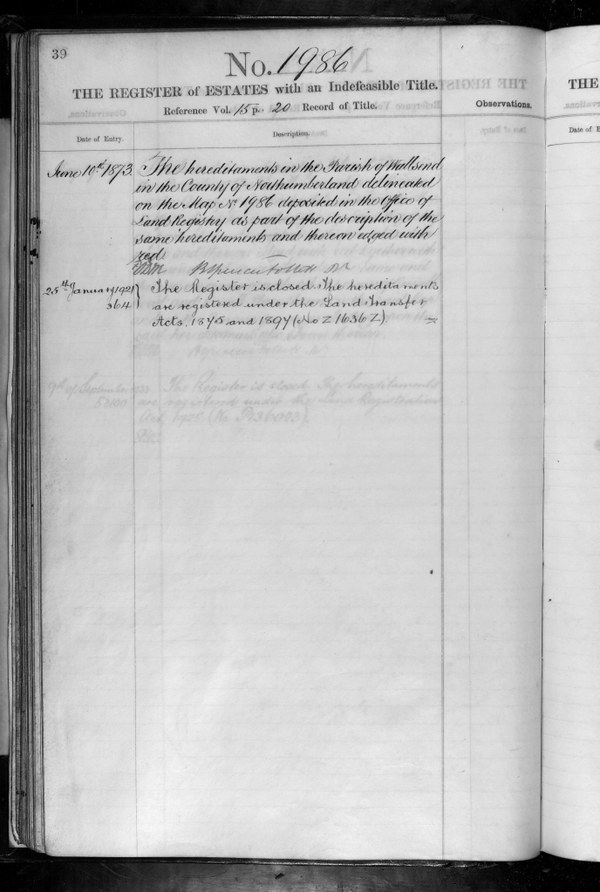 39
No. 1986
THE REGISTER of ESTATES with an Indefeasible Title.
Reference Vol. 15 p. 20 Record of Title.
Observations.
Date of Entry.
Description.
June 10th 1873. The hereditaments in the Parish of Wallsend
in the County of Northumberland delineated
on the Map No 1986 deposited in the Office of
Land Registry as part of the description of the
same hereditaments and thereon edged with
red
25th January 1921 The Register is closed. The hereditaments
3614 are registered under the Land Transfer
Acts, 1875 and 1897 (No Z 1636 Z).
9th of September The Register is closed The hereditaments
are registered under the Land Registration
Act, 1925
THE
Date of E